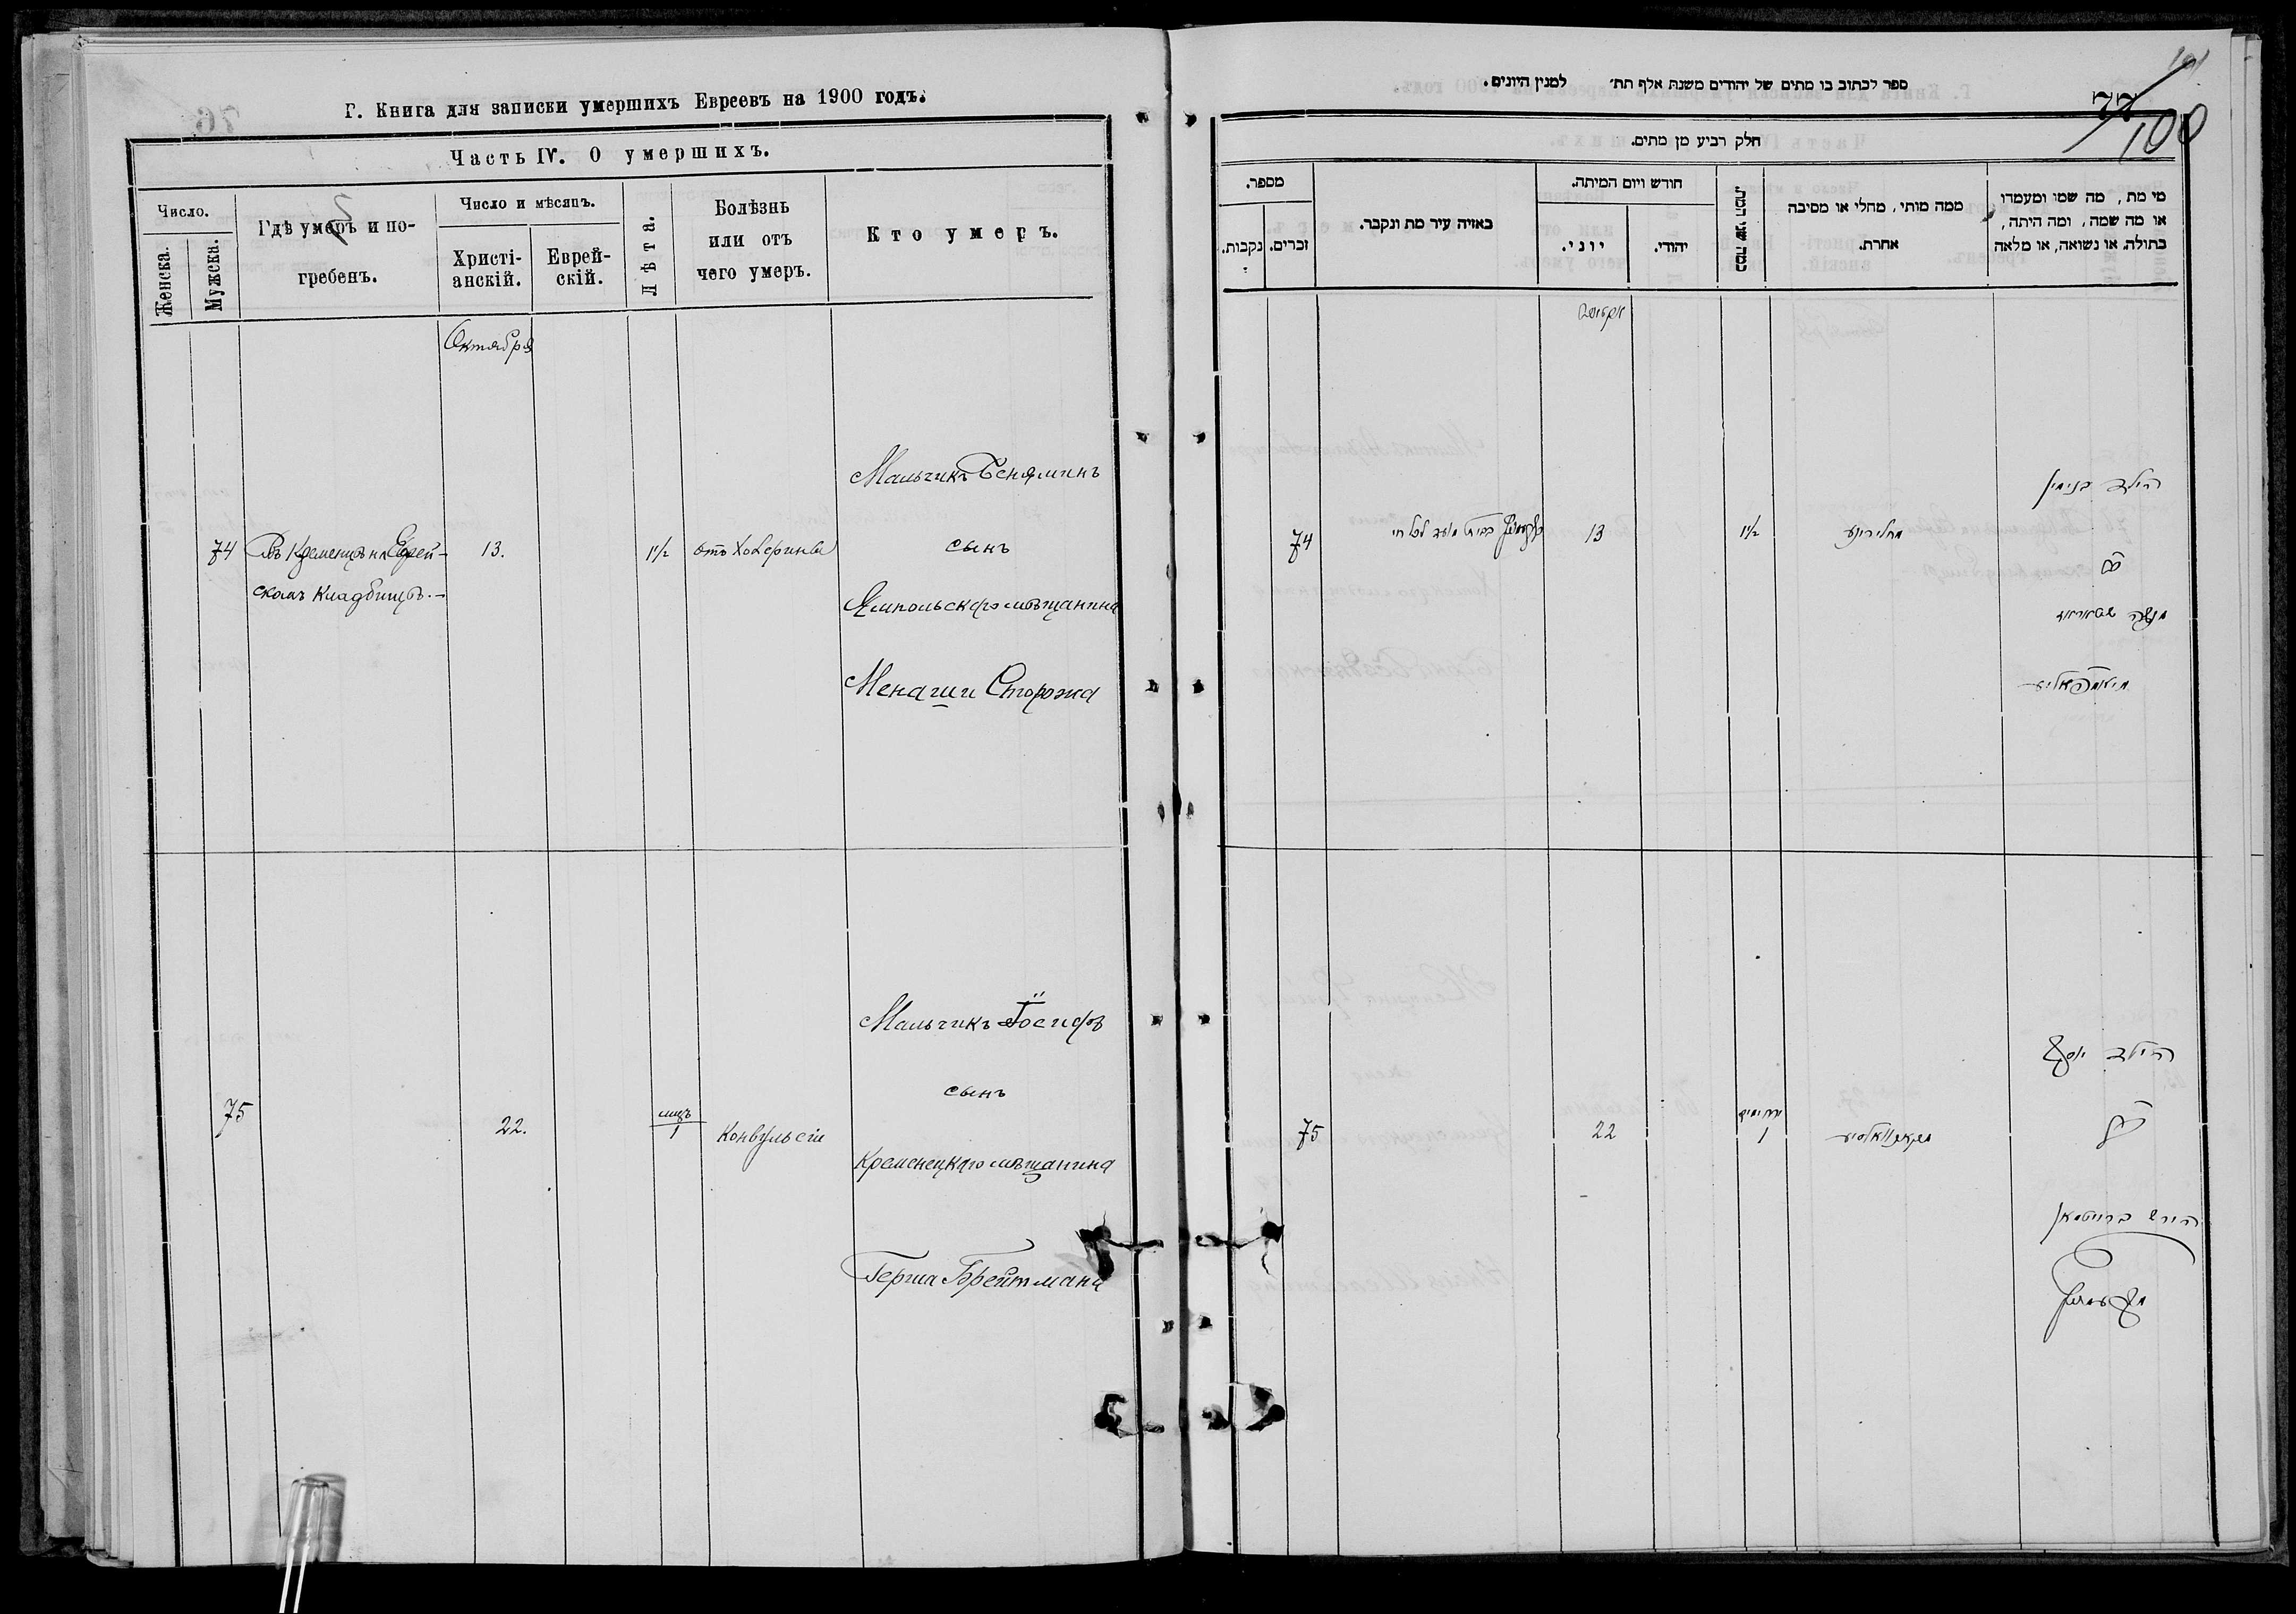 Г. Книга для записки умершихъ Евреевъ на 1900 годъ.
Часть IV. О умершихъ.
Число.
Женска.
Мужска.
Гдѣ умеръ и по-
гребенъ.
Число и мѣсяцъ.
Христі-
анскій.
Еврей-
скій.
Лѣта.
Болѣзнь
или отъ
чего умеръ.
Кто умеръ.
Октября
74
Въ Кременцѣ на Еврей-
скомъ кладбищѣ.-
13.
1 1/2
отъ Холерины
Мальчикъ Беняминъ
сынъ
Ямпольскаго мѣщанина
Менаши Сторожа
75
22.
мцъ
1
Конвульсіи
Мальчикъ Іосифъ
сынъ
Кременецкаго мѣщанина
Герша Брейтмана
ספר לכתוב בו מתים של יהודים משנת אלף תת׳ למנין היונים.
77
100
101
חלק רביע מן מתים.
מספר.
נקבות.
זכרים.
באיזה עיר מת ונקבר.
חודש ויום המיתה.
יוני.
יהודי.
כמה שני המת.
ממה מותי, מחלי או מסיבה
אחרת.
מי מת, מה שמו ומעמדו
או מה שמה, ומה היתה,
בתולה. או נשואה, או מלאה
74
בית מועד לכל חי
13
1 1/2
הילד בנימין
מנשה
75
22
1
הילד יוסף
הירש ברייטמאן